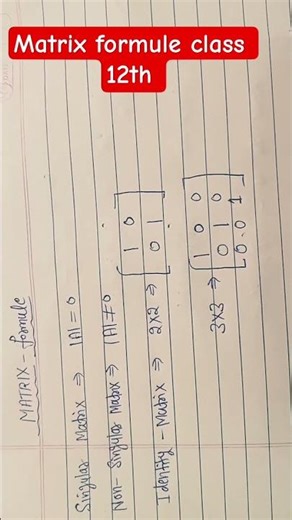 Matrix formule class
12th
MATRIX - formule
Singular Matrix ⇒ |A| = 0
Non - Singular Matrix ⇒ |A| ≠ 0
Identity - Matrix ⇒ 2×2 ⇒ [1 0
0 1]
3×3 ⇒ [1 0 0
0 1 0
0 0 1]